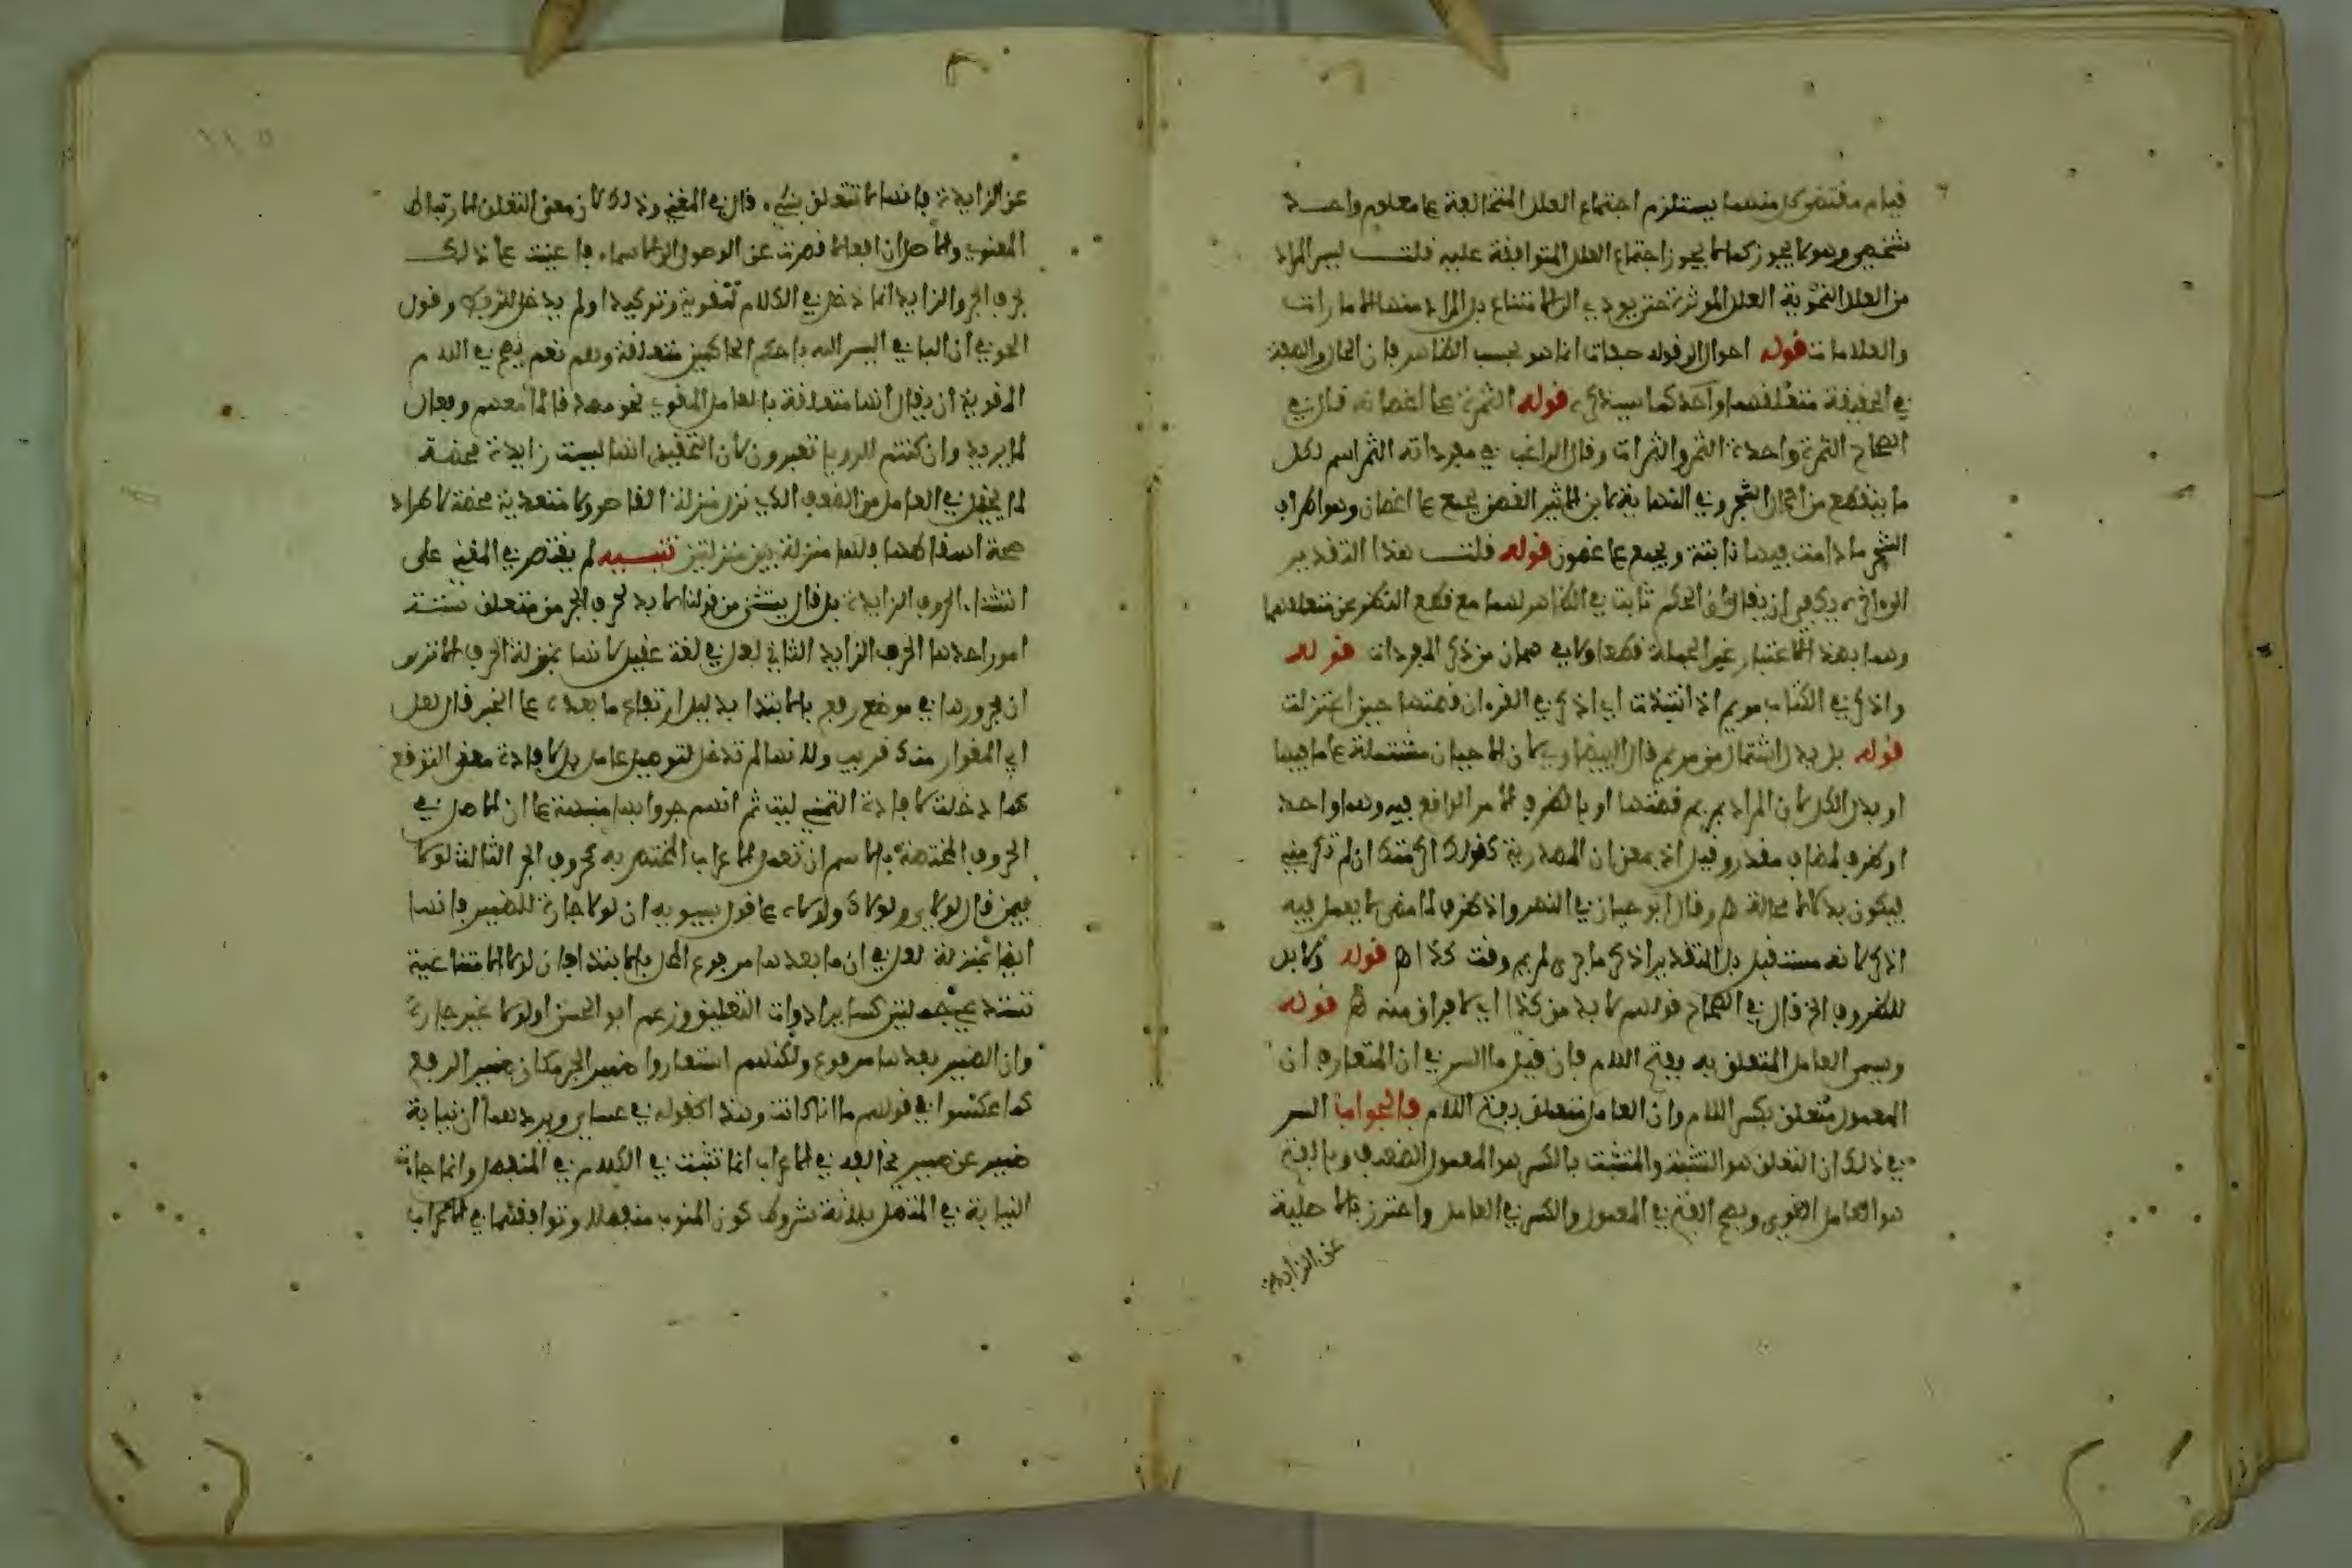 قيام مقتضى كل منهما يستلزم اجتماع العلل المتخالفة على معلوم واحد
شخصي وهو لا يجوز كما لا يجوز اجتماع العلل المتوافقة عليه قلت ليس المراد
من العلل النحوية العلل المؤثرة حتى يودي الى الامتناع بل المراد منها الامارات
والعلامات قوله احوال الى قوله صفات انما هو بحسب الظاهر فان الحال والصفة
في الحقيقة متعلقهما واحد كما سيذكره قوله الثمرة على اغصانه قال في
الصحاح الثمرة واحدة الثمر والثمرات وقال الراغب في مفرداته الثمر اسم لكل
ما يتطعم من احمال الشجر وفي النهاية لابن الاثير الغصن يجمع على اغصان وهو اطراف
الشجر ما دامت فيها ثابتة ويجمع على غصون قوله قلت هذا التقدير
الى يكفي ان يقال ان الحكم ثابت في الظاهر لهما مع قطع النظر عن متعلقهما
وهما بهذا الاعتبار غير الجملة قطعا من ذكر المفردات قوله
واذكر في الكتاب مريم اذ انتبذت اي اذكر في القرءان قصتها حين اعتزلت
قوله بل بدل اشتمال من مريم قال البيضاوي لان الاحيان مشتملة على ما فيها
او بدل الكل لان المراد بمريم قصتها او بالظرف الامر الواقع فيه وهما واحد
او ظرف لمضاف مقدر وقيل اذ بمعنى ان المصدرية كقولك اكرمتك اذ لم تكرمني
فيكون بدلا لا محالة اه وقال ابو حيان في النهر واذ ظرف لما مضى لا يعمل فيه
اذكر لانه مستقبل بل التقدير اذكر ما جرى لمريم وقت كذا اه قوله ولا بد
للظروف الخ قال في الصحاح قولهم لا بد من كذا اي لا فراق منه اه قوله
ويسمى العامل المتعلق به بفتح اللام فان قيل ما السر في ان المتعارف ان
المعمول متعلق بكسر اللام وان العامل متعلق بفتح اللام فالجواب السر
في ذلك ان التعلق هو التشبث والمتشبث بالكسر هو المعمول الضعيف وبالفتح
هو العامل القوي ويصح الفتح في المعمول والكسر في العامل واحترز بالاصلية
عن الزايدة
عن الزايدة فانها لا تتعلق بشيء قال في المغني وذلك لان معنى التعلق الارتباط
المعنوي والاصل ان افعالا قصرت عن الوصول الى الاسماء فاعينت على ذلك
بحروف الجر والزايد انما دخل في الكلام تقوية وتوكيدا ولم يدخل للربط وقول
الحوفي ان الباء في اليس الله باحكم الحاكمين متعلقة وهم نعم يصح في اللام
المقوية ان يقال انها متعلقة بالعامل المقوى نحو مصدقا لما معهم وفعال
لما يريد وان كنتم للرويا تعبرون لان التحقيق انها ليست زايدة محضة
لما يخيل في العامل من الضعف الذي نزل منزلة القاصر ولا متعدية محضة لاطراد
صحة اسقاطها فلها منزلة بين منزلتين تنبيه لم يقتصر في المغني على
استثناء الحروف الزايدة بل قال يستثنى من قولنا لا بد لحرف الجر من متعلق ستة
امور احدها الحرف الزايد الثاني لعل في لغة عقيل لانها بمنزلة الحرف الا ترى
ان مجرورها في موضع رفع بالابتداء بدليل ارتفاع ما بعده على الخبر قال لعل
ابي المغوار منك قريب ولانها لم تدخل لتوصيل عامل بل لافادة معنى التوقع
كما دخلت لافادة التمني ليت ثم انهم جروا بها منبهة على ان الاصل في
الحروف المختصة بالاسم ان تعمل الاعراب المختص به كحروف الجر الثالث لولا
فيمن قال لولاي ولولاك ولولاه على قول سيبويه ان لولا جارة للضمير فانها
ايضا بمنزلة لعل في ان ما بعدها مرفوع المحل بالابتداء فان لولا الامتناعية
تستدعي جملتين كساير ادوات التعليق وزعم ابو الحسن ان لولا غير جارة
وان الضمير بعدها مرفوع ولكنهم استعاروا ضمير الجر مكان ضمير الرفع
كما عكسوا في قولهم ما انا كانت وهذا كقوله في عساي ويردهما ان نيابة
ضمير عن ضمير يخالفه في الاعراب انما تثبت في الكلام في المنفصل وانما جاءت
النيابة في المتصل بثلاثة شروط كون المنوب منفصلا وتوافقهما في الاعراب